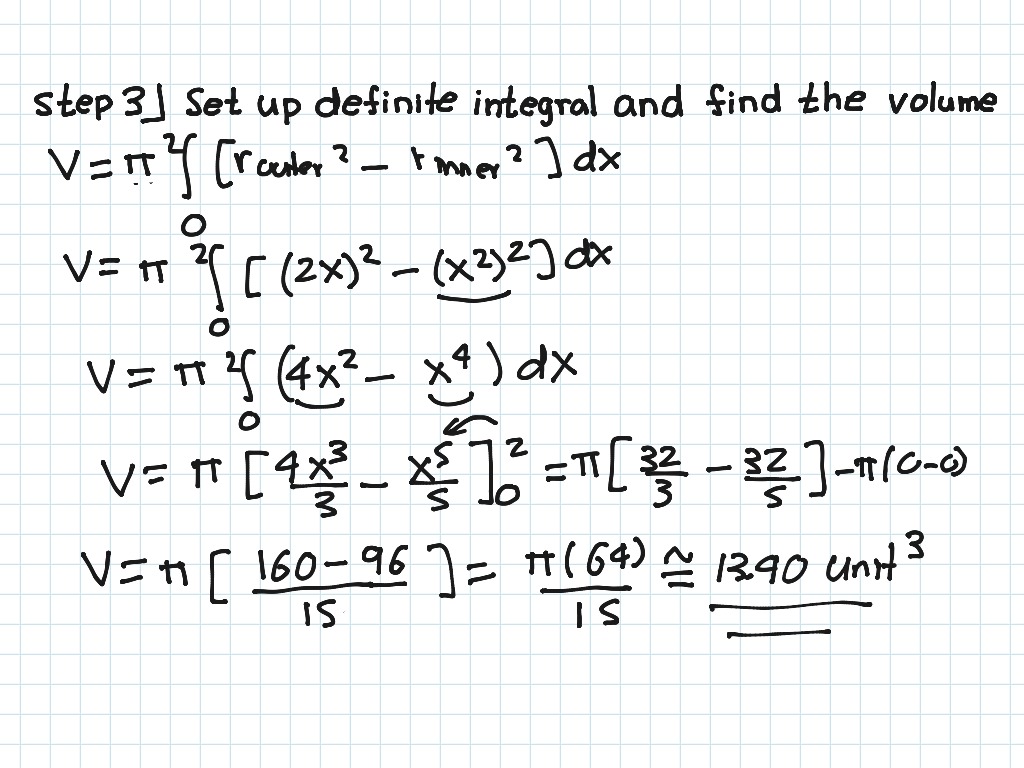 step 3] Set up definite integral and find the volume
V = π ²∫₀ [r outer² − r inner²] dx
V = π ²∫₀ [(2x)² − (x²)²] dx
V = π ²∫₀ (4x² − x⁴) dx
V = π [4x³/3 − x⁵/5]₀² = π [32/3 − 32/5] − π(0−0)
V = π [160 − 96 / 15] = π(64)/15 ≅ 13.40 unit³